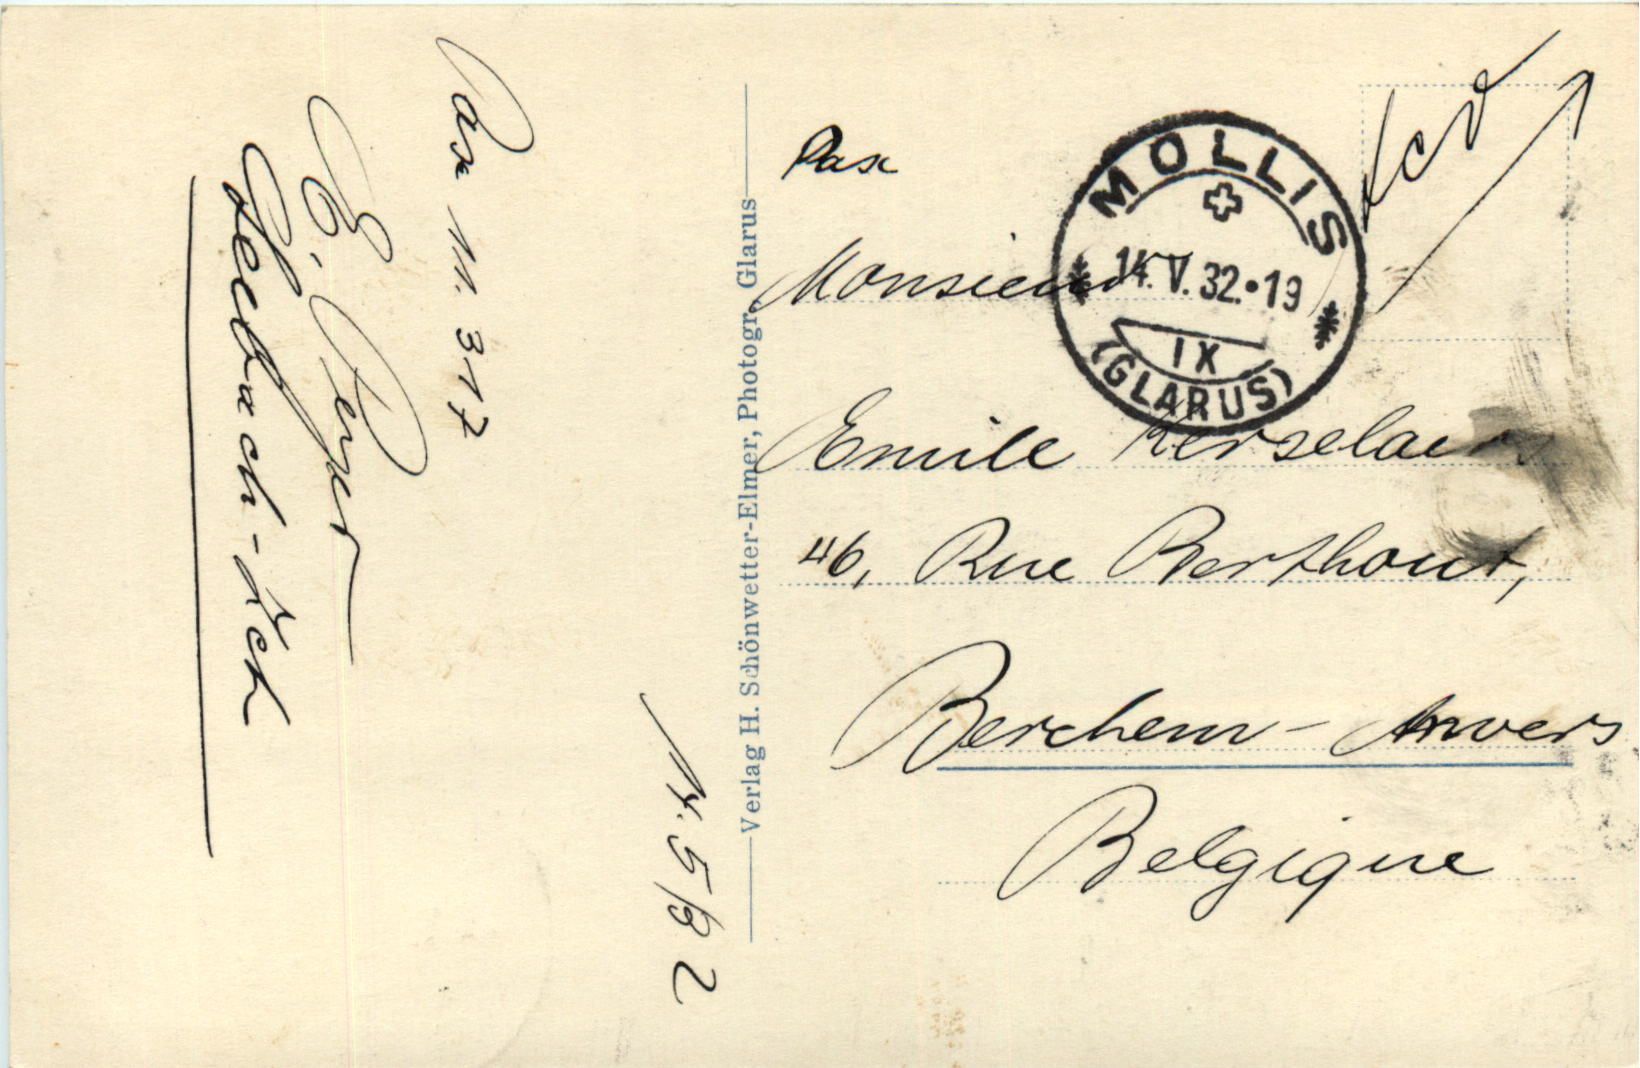 Pax N. 317
Seebach-Zch
14. 5/32
Verlag H. Schönwetter-Elmer, Photogr., Glarus
Pax
tcv
MOLLIS
14.V.32.•19
IX
(GLARUS)
Monsieur
Emile Kerselaers
46, Rue Berthout,
Berchem - Anvers
Belgique